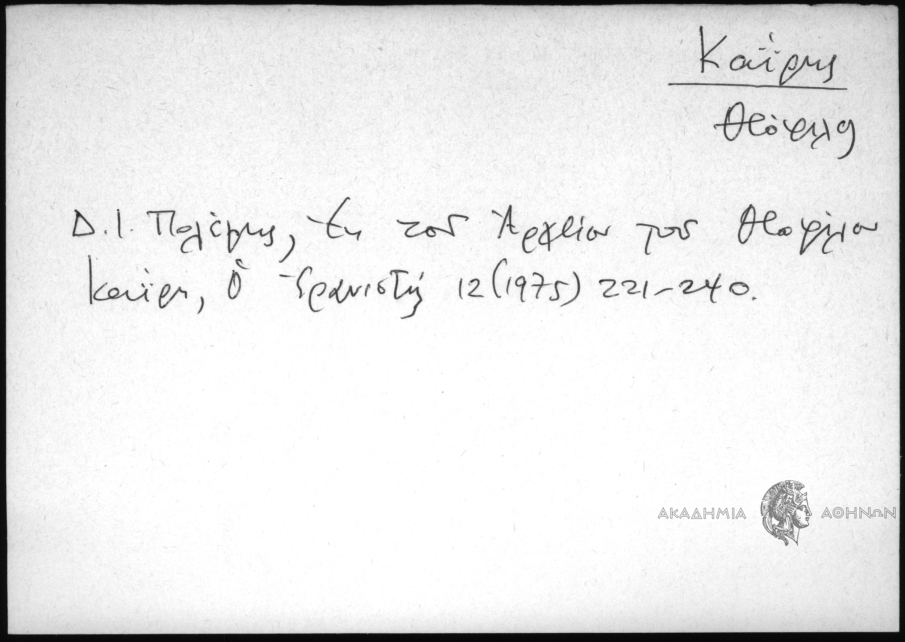 Καΐρης
Θεόφιλος
Δ. Ι. Πολέμης, Ἐκ τοῦ Ἀρχείου τοῦ Θεοφίλου
Καΐρη, Ὁ Ἐρανιστής 12 (1975) 221-240.
ΑΚΑΔΗΜΙΑ ΑΘΗΝΩΝ